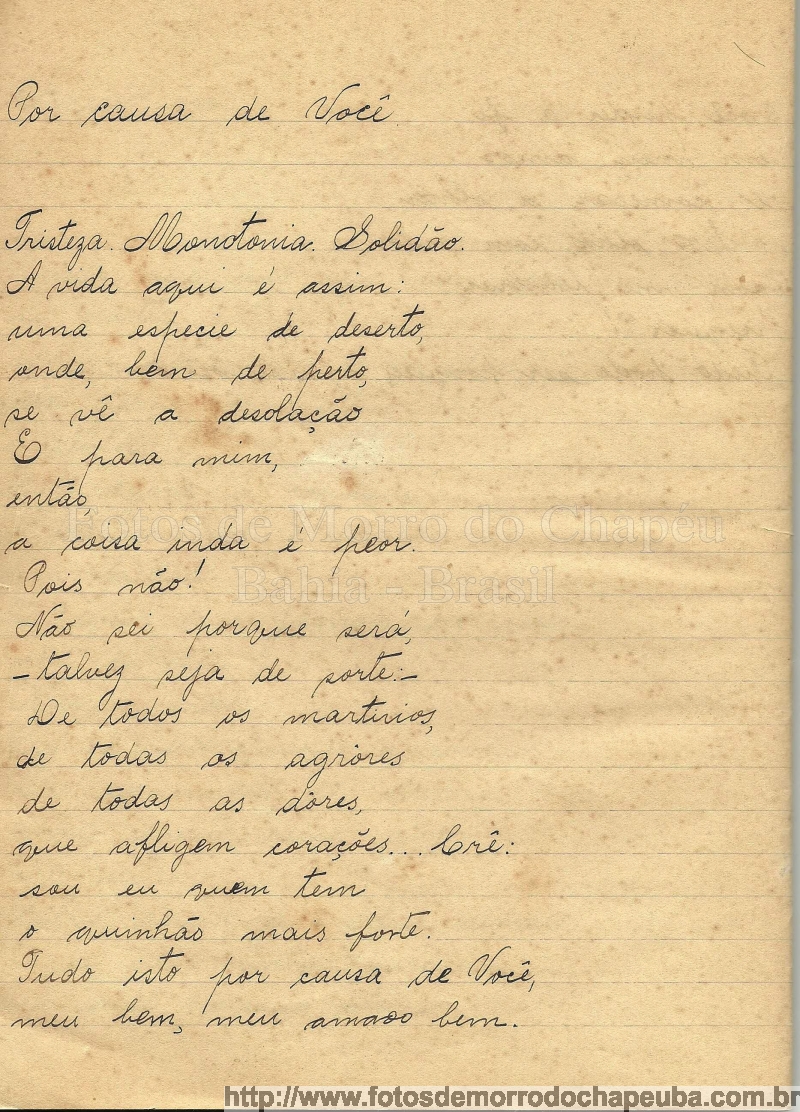 Por causa de Você
Tristeza. Monotonia. Solidão.
A vida aqui é assim:
uma especie de deserto,
onde, bem de perto,
se vê a desolação
E para mim,
então,
a coisa inda é peor.
Pois não!
Não sei porque será,
- talvez seja de sorte:-
De todos os martirios,
de todas as agrôres
de todas as dôres,
que afligem corações... Crê:
sou eu quem tem
o quinhão mais forte.
Tudo isto por causa de Você,
meu bem, meu amado bem.
Fotos de Morro do Chapéu
Bahia - Brasil
http://www.fotosdemorrodochapeuba.com.br